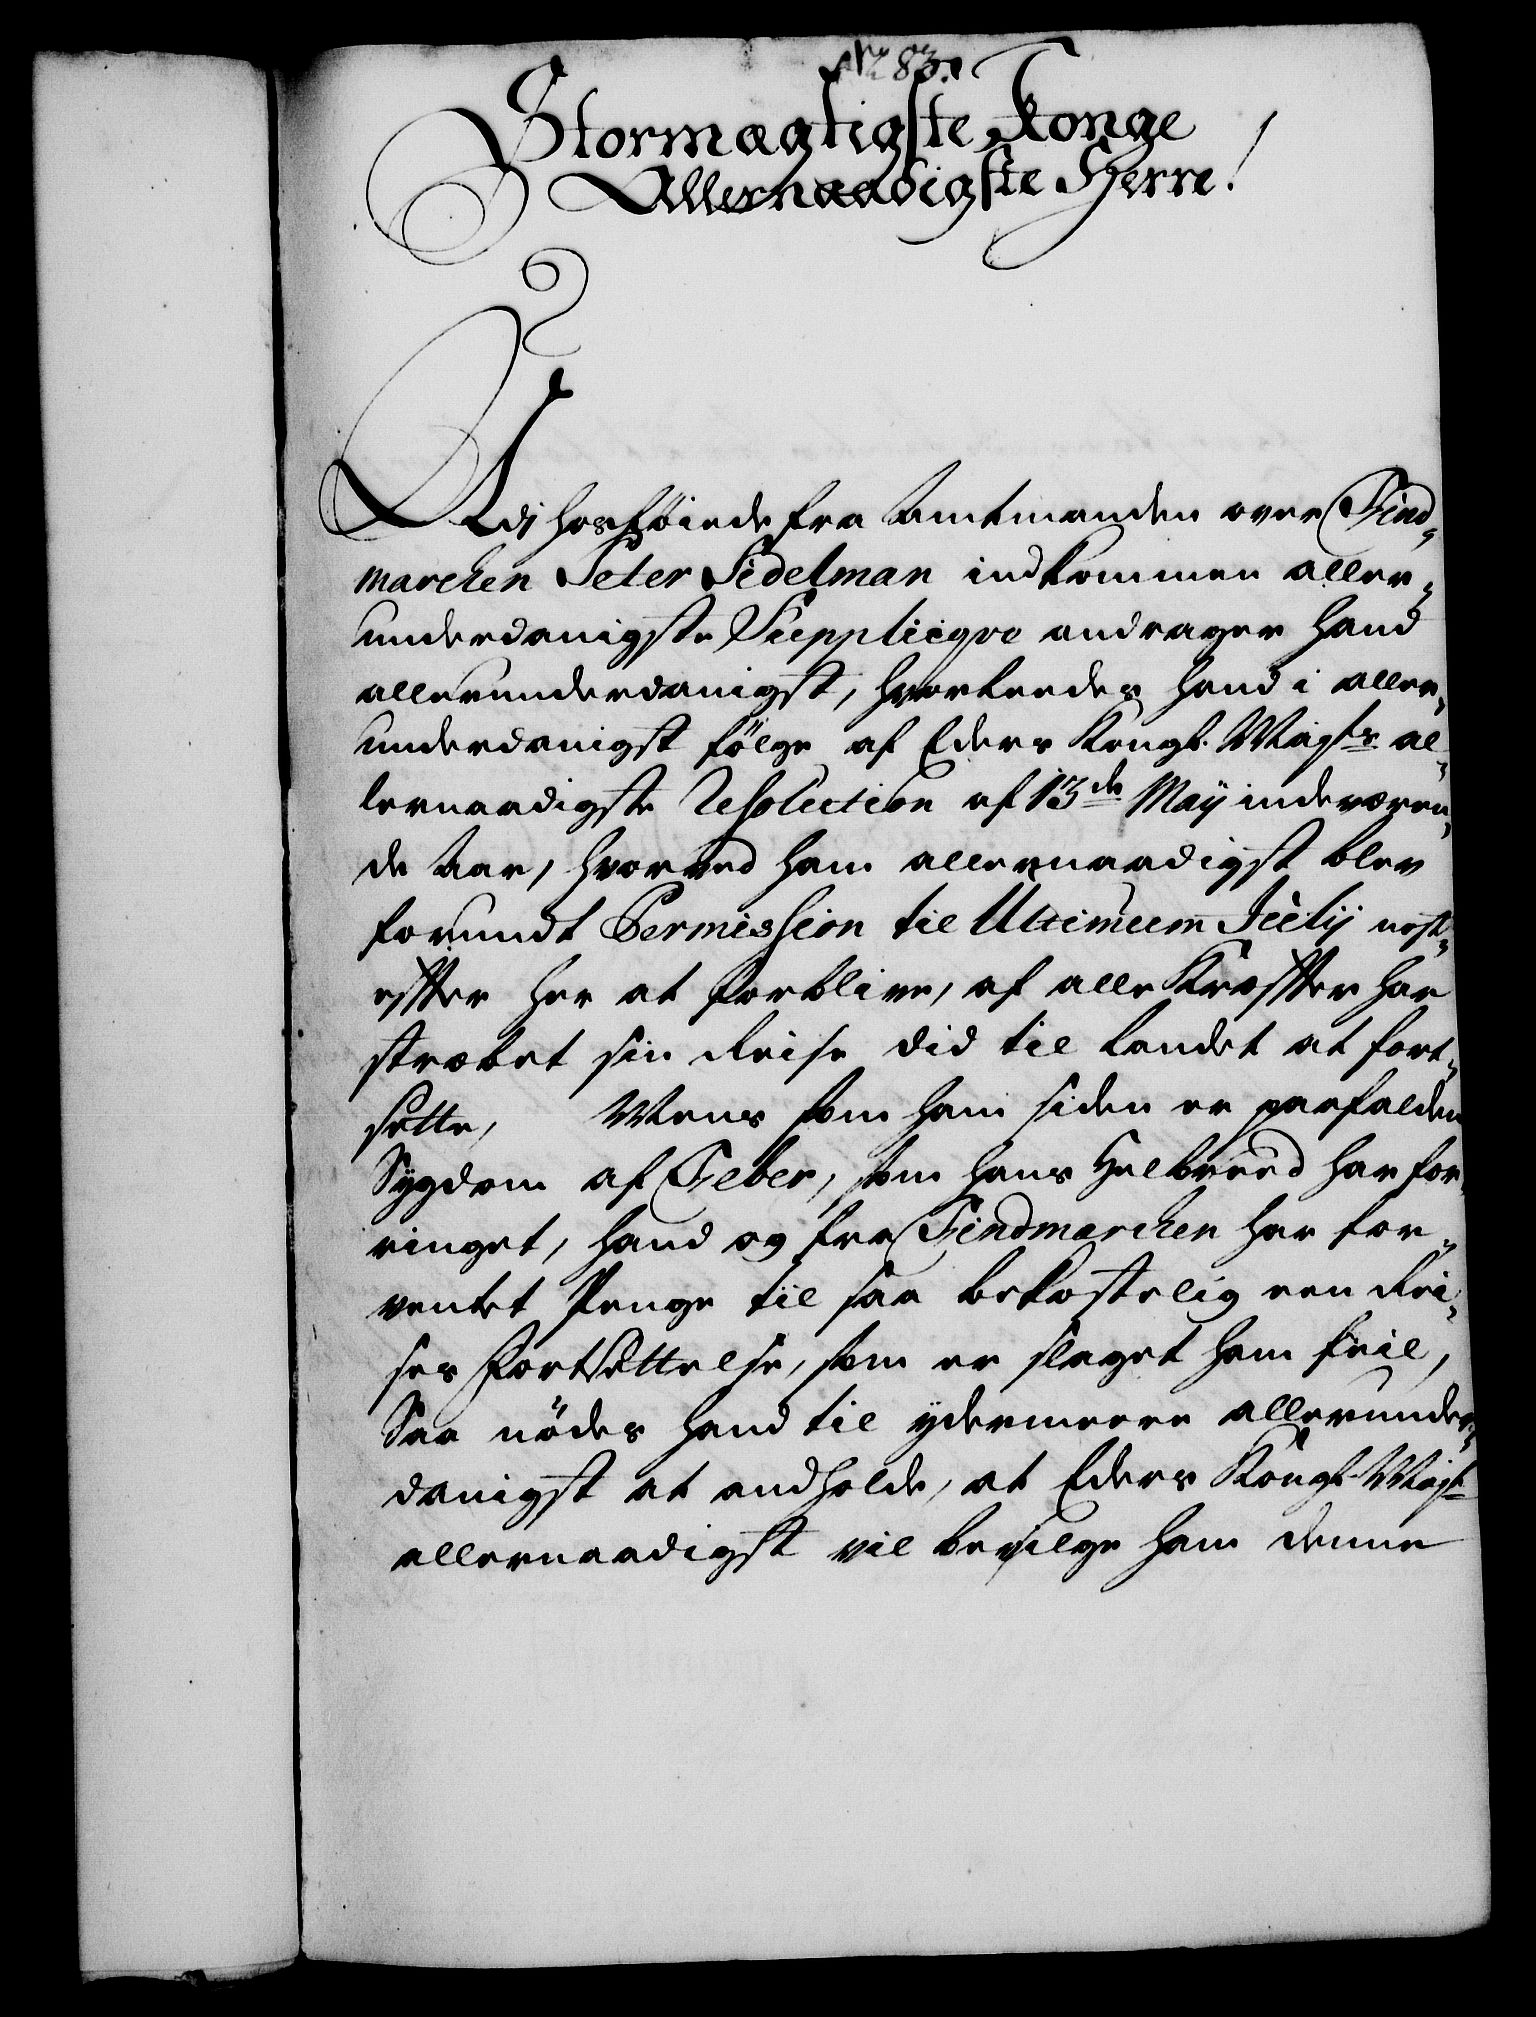 No 83.
Stormægtigste Konge
Allernaadigste Herre!
Udj hosføiede fra Amtmanden over Find-
marchen Peter Fidelman indkommen aller-
underdanigste Supplicqve andrager hand
allerunderdanigst, hvorledes hand i aller-
underdanigst følge af Eders Kongl. Mayts al-
lernaadigste Resolution af 13de Maÿ indeværen-
de Aar, hvorved ham allernaadigst blev
forundt Permission til Ultimum Julij nest-
effter her at forblive, af alle Kræffter har
stræbet sin Reise did til Landet at fort-
sette, Mens som ham siden er paafalden
Sygdom af Feber, som hans Helbreed har for-
ringet, hand og fra Findmarchen har for-
ventet Penge til saa bekostelig een Rei-
ses Fortsettelse, som er slaget ham feil,
Saa nødes hand til ydermeere allerunder-
danigst at andholde, at Eders Kongl. Mayt
allernaadigst vil bevilge ham denne